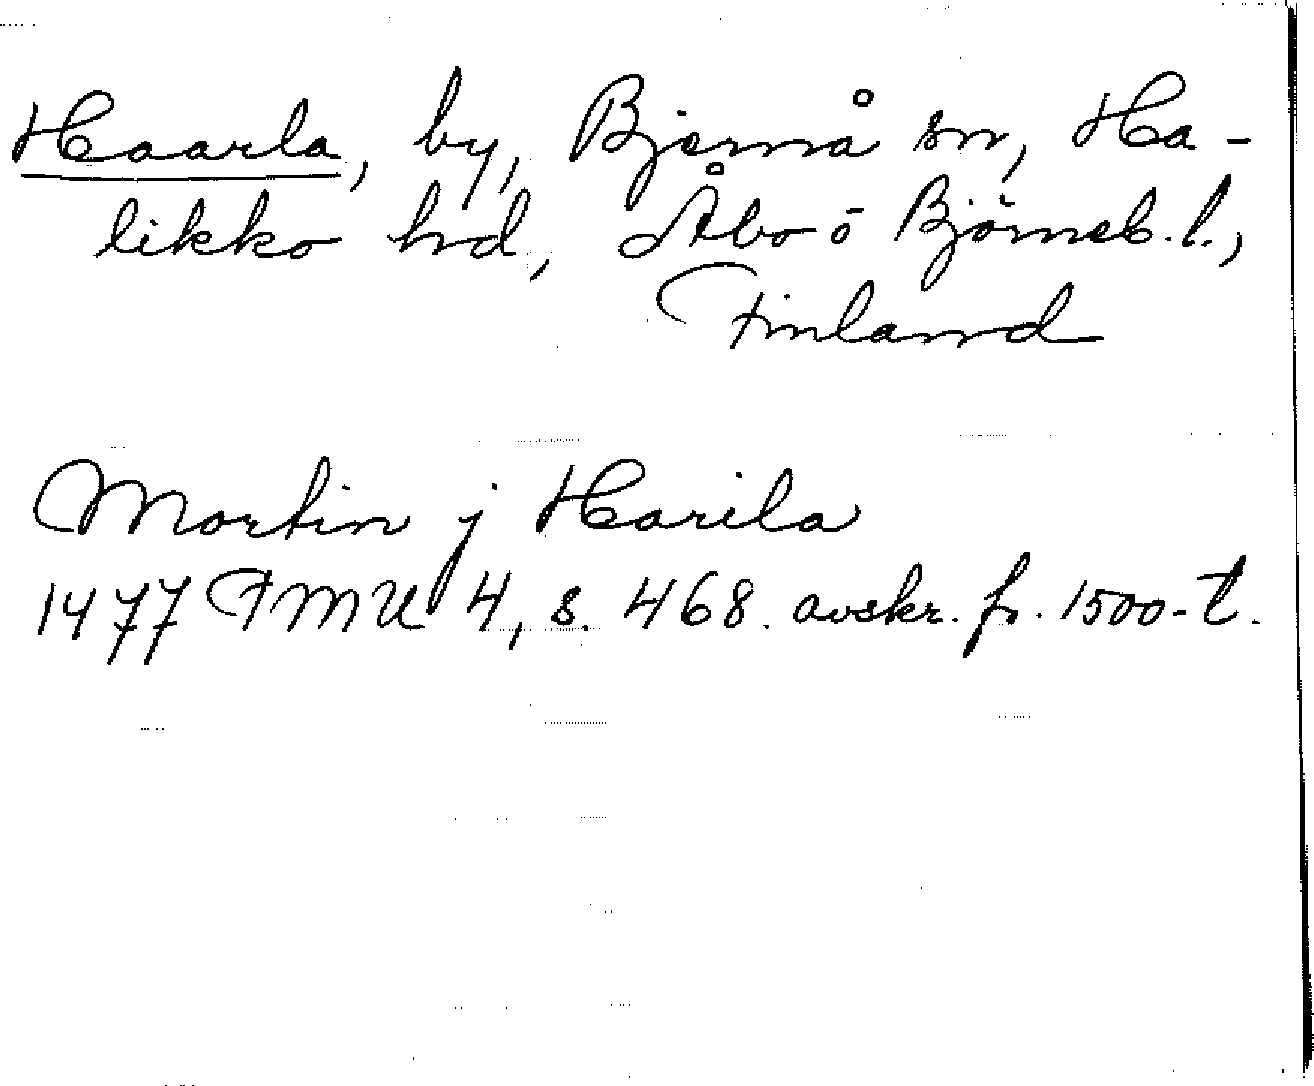 Haarla, by, Bjernå sn, Ha-
likko hd, Åbo o Björneb. l.,
Finland
Mortin j Harila
1477 FMU 4, s. 468. avskr. fr. 1500-t.